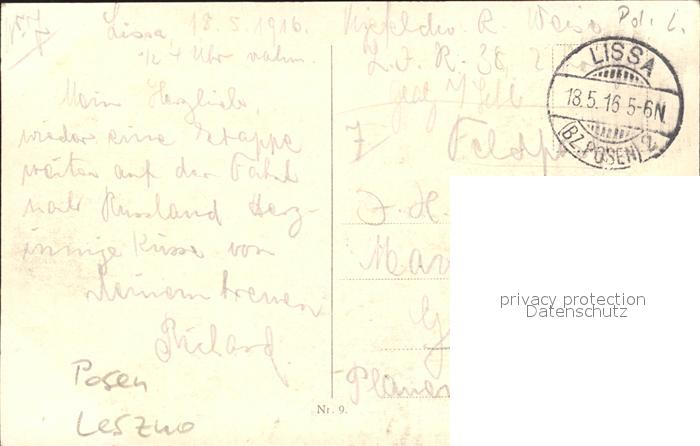 Lissa, 18.5.1916.
1/2 4 Uhr nachm.
Mein Herzlieb,
wieder eine Etappe
weiter auf der Fahrt
nach Russland Herz-
innige Küsse von
Deinem treuen
Richard.
Posen
Leszno
R. Weiss
Pol. L.
Feldp
LISSA
18.5.16 5-6N.
(BZ. POSEN) 2
J. H.
Mar
G
Planen
Nr. 9.
privacy protection
Datenschutz